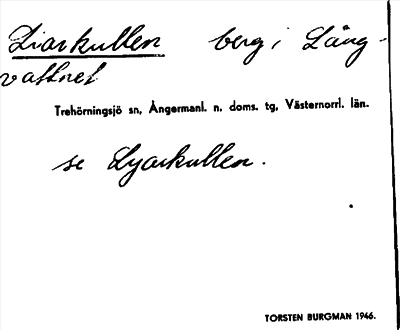 Liarkullen berg i Lång-
vattnet
Trehörningsjö sn, Ångermanl. n. doms. tg, Västernorrl. län.
se Lyarkullen.
TORSTEN BURGMAN 1946.